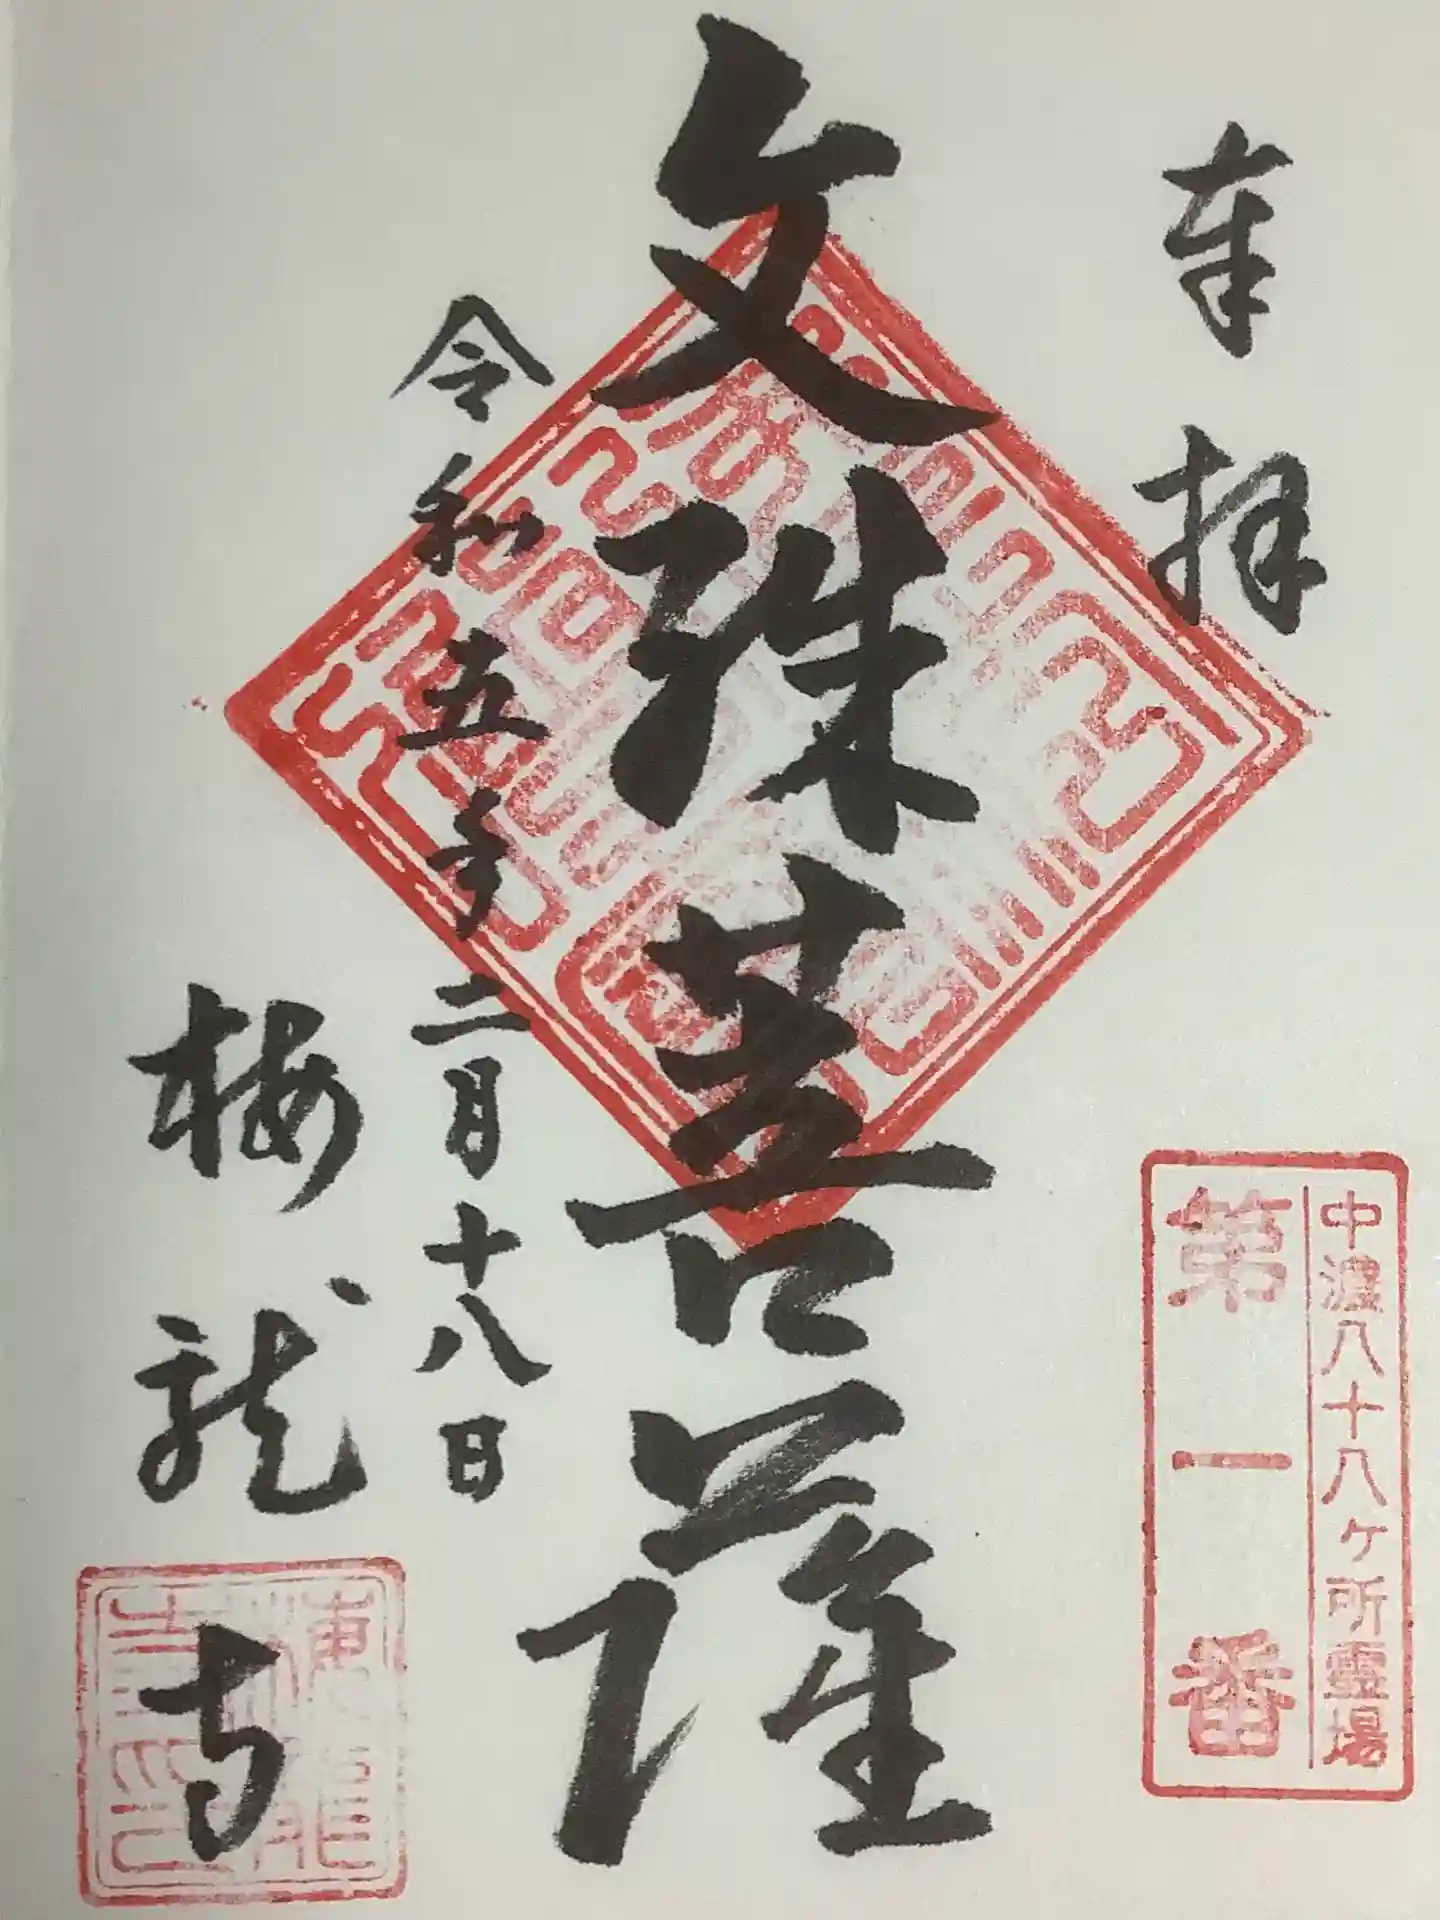 奉拝
中濃八十八ヶ所霊場
第一番
文殊菩薩
令和五年二月十八日
梅龍寺